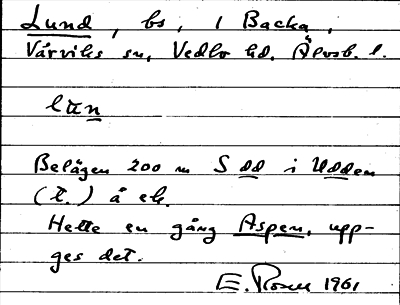 Lund, bs, 1 Backa,
Vårviks sn, Vedbo hd, Älvsb. l.
lun
Belägen 200 m S dd i Udden
(t.) å ek.
Hette en gång Aspen, upp-
ges det.
E. Rosell 1961